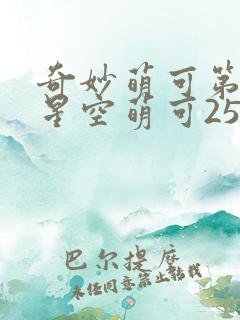 奇妙萌可第
星空萌可25
巴尔提摩
未经同意禁止转载